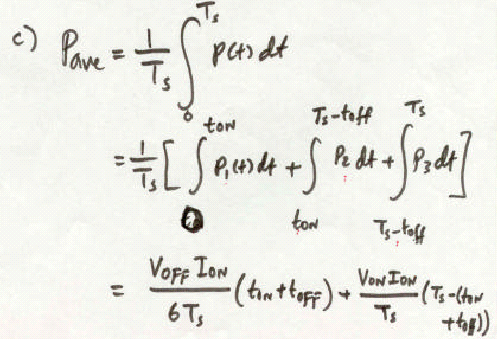 c) Pave = 1/Ts ∫₀^Ts p(t) dt
= 1/Ts [ ∫₀^ton P₁(t) dt + ∫ton^Ts-toff P₂ dt + ∫Ts-toff^Ts P₃ dt ]
= VOFF ION / 6Ts (tIN + tOFF) + VON ION / Ts (Ts - (toN + toff))